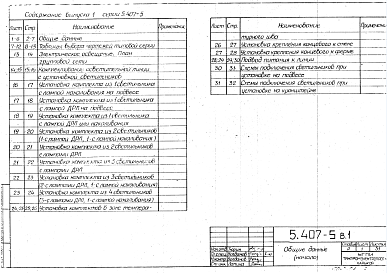 Содержание выпуска 1 серии 5.407-5
Лист Стр. Наименование Примечание
1-6 2-7 Общие данные
7-12 8-13 Таблицы выбора чертежей типовой серии
13 14 Электрическое освещение. План
групповой сети
Комплектование осветительной линии
с установкой светильников
16 17 Установка комплекта из 1 светильника
с лампой накаливания на подвесе
17 18 Установка комплекта из 1 светильника
с лампой ДРЛ на подвесе
18 19 Установка комплекта из 1 светильника
с лампой ДРЛ или накаливания
19 20 Установка комплекта из 2 светильников
(1-с лампой ДРЛ, 1-с лампой накаливания)
20 21 Установка комплекта из 2 светильников
с лампами ДРЛ
21 22 Установка комплекта из 3 светильников
с лампами ДРЛ
22 23 Установка комплекта из 3 светильников
(2-с лампами ДРЛ, 1-с лампой накаливания)
23 24 Установка комплекта из 4 светильников
(3-с лампами ДРЛ, 1-с лампой накаливания)
Установка комплектов в зоне темпера-
Лист Стр. Наименование Примечание
турного шва
26 27 Установка крепления концевого к стене
27 28 Установка крепления концевого к ферме
28,29 29,30 Подвод питания к линии
30 31 Схемы подключения светильников при
установке на подвесе
31 32 Схемы подключения светильников при
установке на кронштейне
5.407-5 в.1
Общие данные
(начало)